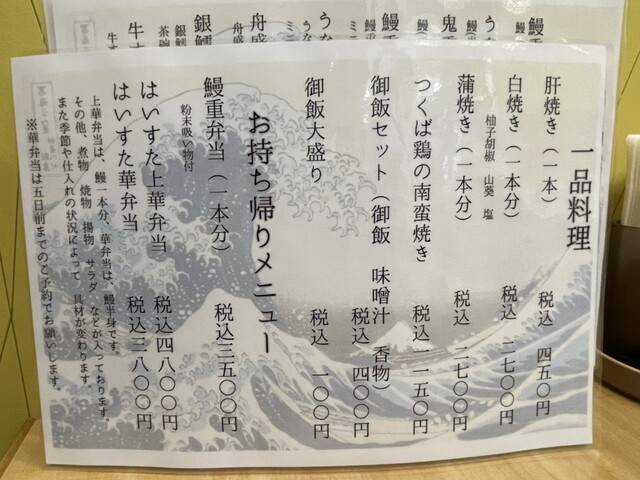 一品料理
肝焼き（一本） 税込 四五〇円
白焼き（一本分） 税込 二七〇〇円
柚子胡椒 山葵 塩
蒲焼き（一本分） 税込 二七〇〇円
つくば鶏の南蛮焼き 税込 一一五〇円
御飯セット（御飯 味噌汁 香物） 税込 四〇〇円
御飯大盛り 税込 一〇〇円
お持ち帰りメニュー
鰻重弁当（一本分） 税込三五〇〇円
粉末吸い物付
はいすた上華弁当 税込四八〇〇円
はいすた華弁当 税込三八〇〇円
上華弁当は、鰻一本分、華弁当は、鰻半身です。
その他、煮物 焼物 揚物 サラダ などが入っております。
また季節や仕入れの状況によって 具材が変わります。
※華弁当は五日前までのご予約でお願いします。